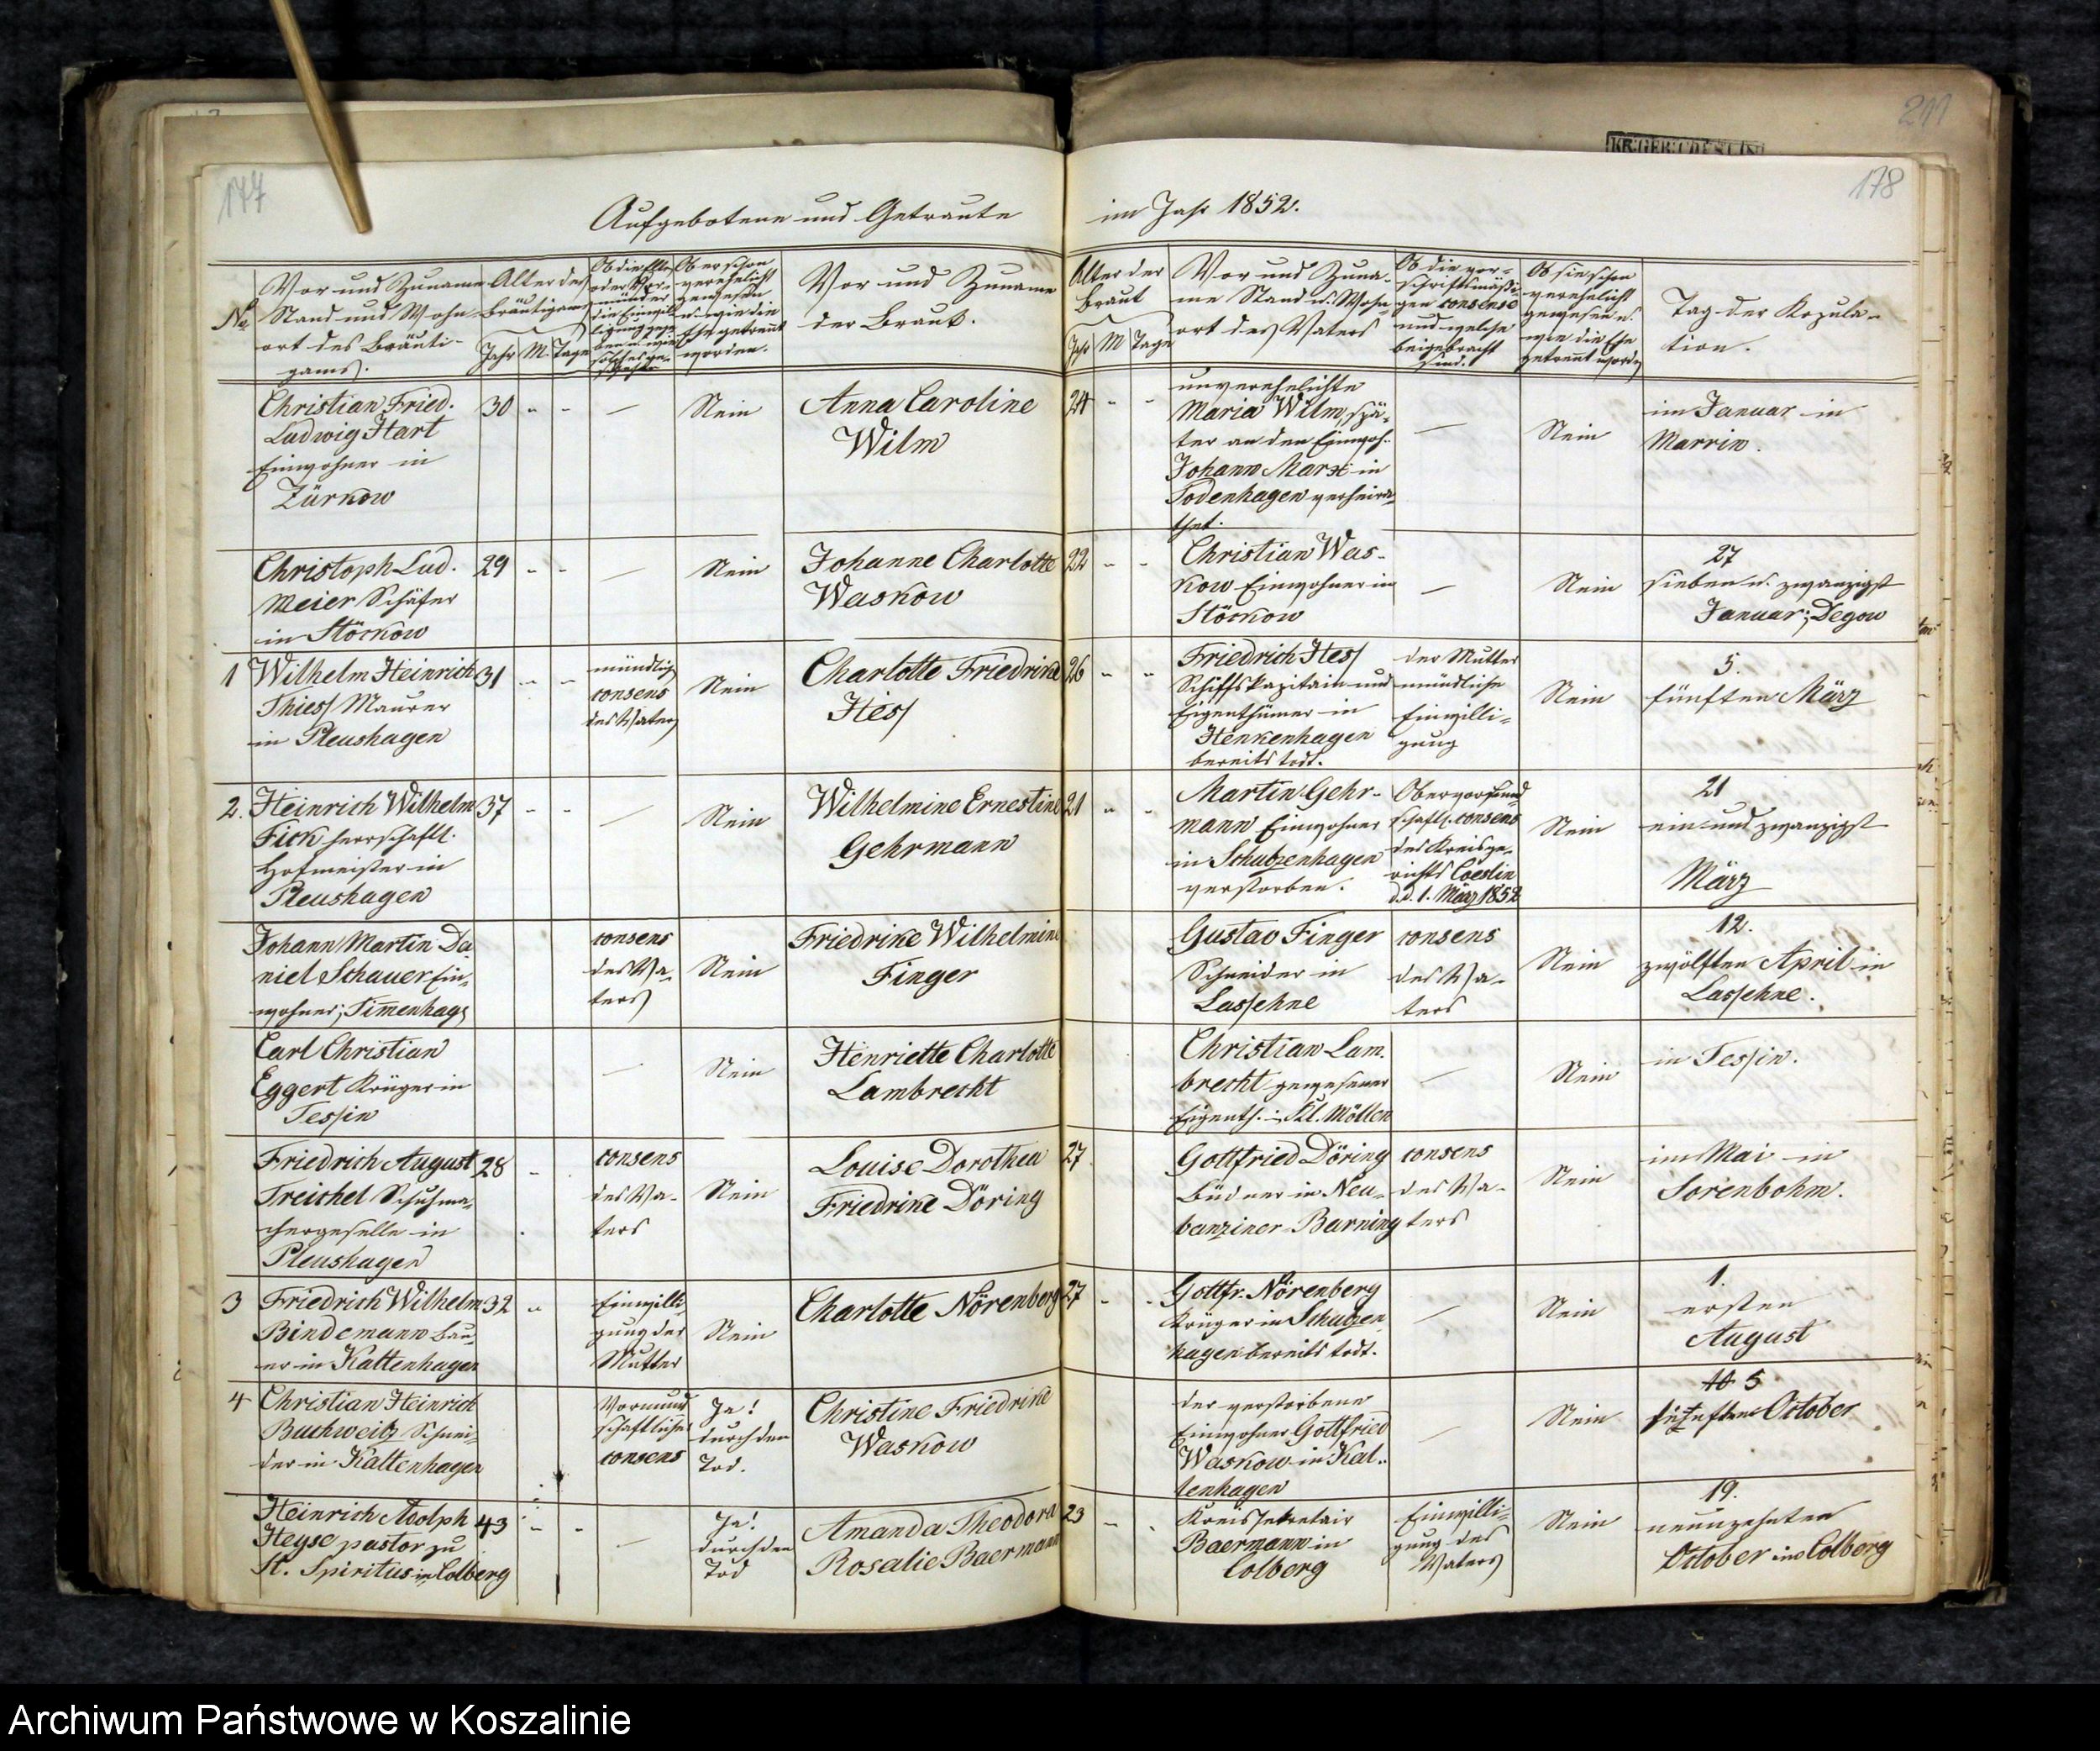 177
178
211
Aufgebotene und Getraute
im Jahr 1852.
No.
Vor und Zuname
Stand und Wohn-
ort des Bräuti-
gams.
Alter des
Bräutigams
Jahr M. Tage
Ob er schon
verehelicht
gewesen
u. wie die
Ehe getrennt
worden.
Vor und Zuname
der Braut.
Alter der
Braut
Jahr M Tage
Vor und Zuna-
me Stand u. Wohn-
ort des Vaters
Ob die vor-
schriftsmäßi-
gen consense
und welche
beigebracht
sind.
Ob sie schon
verehelicht
gewesen u.
wie die Ehe
getrennt worden
Tag der Kopula-
tion.
Christian Fried.
Ludwig Hart
Einwohner in
Zürkow
30 " "
—
Nein
Anna Caroline
Wilm
24 " "
unverehelichte
Maria Wilm, spä-
ter an den Einwoh.
Johann Marx in
Todenhagen verheira-
thet.
—
Nein
im Januar in
Marrin.
Christoph Lud.
Meier Schäfer
in Stöckow
29 " "
—
Nein
Johanne Charlotte
Waskow
22 " "
Christian Was-
kow Einwohner in
Stöckow
—
Nein
27
sieben u. zwanzigst
Januar; Degow
1 Wilhelm Heinrich
Thiess Maurer
in Pleushagen
31 " "
mündlich
consens
des Vaters
Nein
Charlotte Friedrike
Hess
26 " "
Friedrich Hess
Schiffskapitain und
Eigenthümer in
Henkenhagen
bereits todt.
der Mutter
mündliche
Einwilli-
gung
Nein
5.
fünften März
2. Heinrich Wilhelm
Fick herrschaftl.
Hofmeister in
Pleushagen
37 " "
—
Nein
Wilhelmine Ernestine
Gehrmann
21 " "
Martin Gehr-
mann Einwohner
in Schulzenhagen
verstorben.
Obervormund
schaftl. consens
des Kreisge-
richts Coeslin
d.d. 1. März 1852
Nein
21
ein und zwanzigst
März
Johann Martin Da
niel Schauer Ein-
wohner; Timenhag;
consens
des Va-
ters
Nein
Friedrike Wilhelmine
Finger
Gustav Finger
Schneider in
Lassehne
consens
des Va-
ters
Nein
12.
zwölften April in
Lassehne.
Carl Christian
Eggert Krüger in
Tessin
—
Nein
Henriette Charlotte
Lambrecht
Christian Lam-
brecht gewesener
Eigenth. in Kl. Möllen
—
Nein
in Tessin.
Friedrich August
Treichel Schuhma-
chergeselle in
Pleushagen
28 "
consens
des Va-
ters
Nein
Louise Dorothea
Friedrike Döring
27
Gottfried Döring
Büdner in Neu-
banziner-Barning
consens
des Va-
ters
Nein
im Mai in
Sorenbohm.
3 Friedrich Wilhelm
Bindemann Bau-
er in Kaltenhagen
32 "
Einwilli-
gung der
Mutter
Nein
Charlotte Nörenberg
27 " "
Gottfr. Nörenberg
Krüger in Schulzen
hagen bereits todt.
—
Nein
1.
ersten
August
4 Christian Heinrich
Buchweitz Schnei-
der in Kaltenhagen
Vormund
schaftlicher
consens
Ja!
durch den
Tod.
Christine Friedrike
Waskow
der verstorbene
Einwohner Gottfried
Waskow in Kal-
tenhagen
—
Nein
5
fünften October
Heinrich Adolph
Heyse pastor zu
St. Spiritus in Colberg
43 " "
—
Ja!
durch den
Tod
Amanda Theodora
Rosalie Baermann
23 " "
Kreissekretair
Baermann in
Colberg
Einwilli-
gung des
Vaters
Nein
19.
neunzehnten
October in Colberg
Archiwum Państwowe w Koszalinie